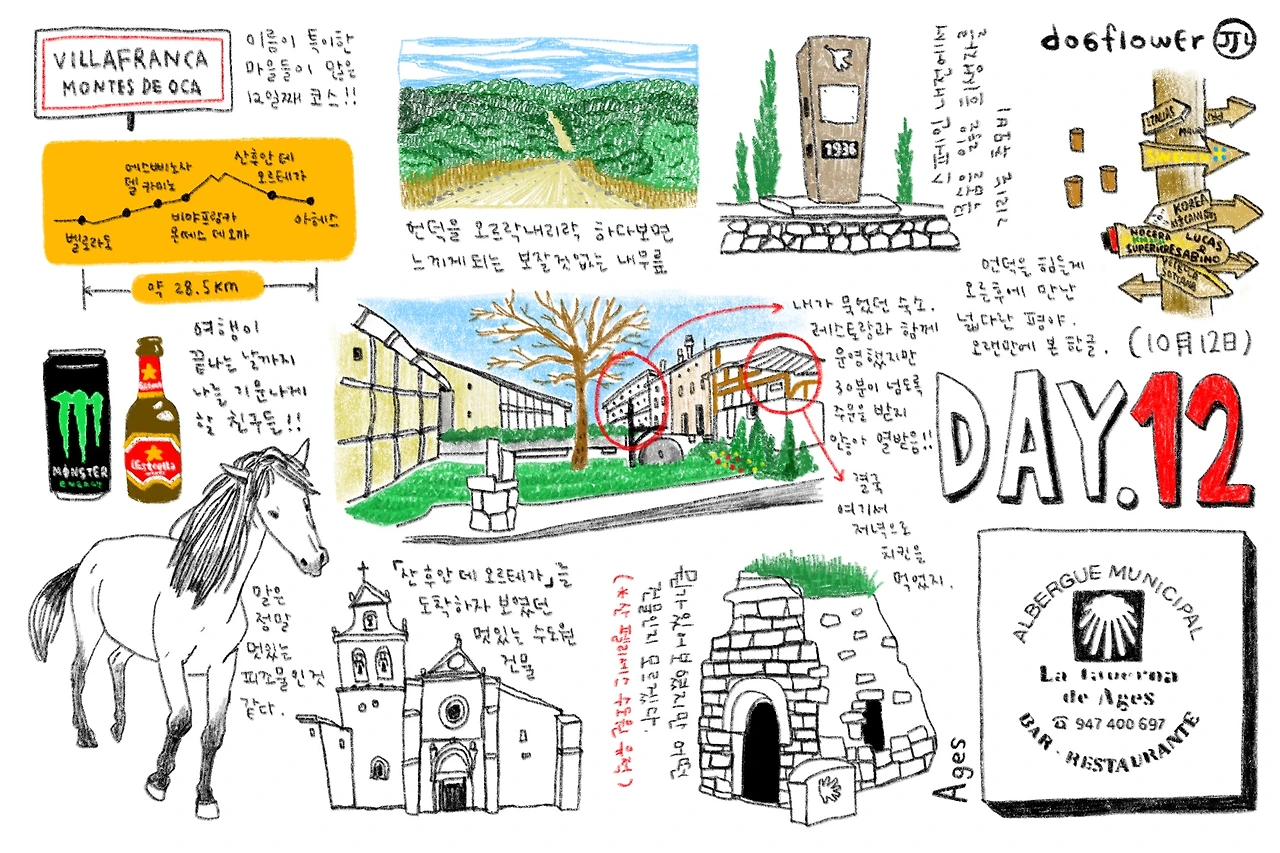 VILLAFRANCA
MONTES DE OCA
이름이 특이한
마을들이 많은
12일째 코스!!
에스삐노사
델 카미노
산후안 데
오르테가
벨로라도
비야프랑카
몬떼스 데 오까
아헤스
약 28.5KM
언덕을 오르락내리락 하다보면
느끼게 되는 보잘 것 없는 내 무릎
1936
dogflower JJL
KOREA
NOCERA
SUPERIORE
LUCAS
SABINO
언덕을 힘들게
오른후에 만난
넓다란 평야.
오랜만에 본 한글.
(10月12日)
DAY.12
여행이
끝나는 날까지
나를 기운나게
할 친구들!!
MONSTER
energy
Estrella
내가 묵었던 숙소.
레스토랑과 함께
운영했지만
30분이 넘도록
주문을 받지
않아 열받음!!
결국
여기서
저녁으로
치킨을
먹었지.
말은
정말
멋있는
피조물인 것
같다.
「산 후안 데 오르테가」를
도착하자 보였던
멋있는 수도원
건물
뭔가 있어 보였지만 어떤
건물인지 모르겠다.
(*산 펠리세스 수도원 유적)
Ages
ALBERGUE MUNICIPAL
La Taverna
de Ages
☎ 947 400 697
BAR - RESTAURANTE